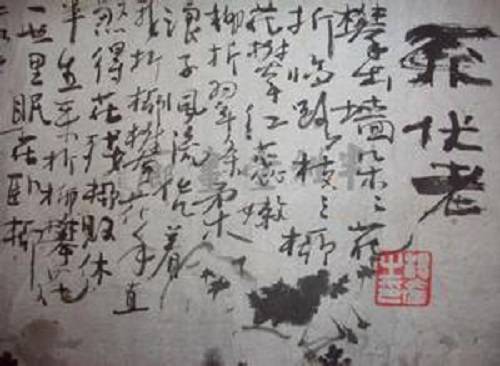 不伏老
攀出墙朵々花
折临路枝々柳
花攀红蕊嫩
柳折翠条柔
浪子风流凭着
我折柳攀花手直
煞得花残柳败休
半生来折柳攀花
一世里眠花卧柳